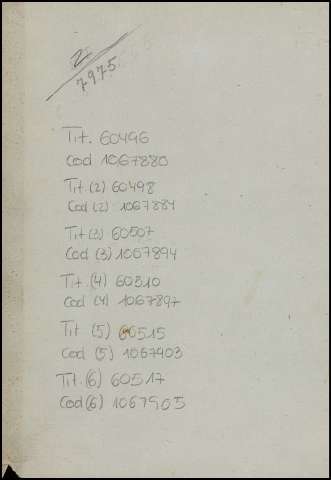 2
7975
Tit. 60496
Cod 1067880
Tit. (2) 60498
Cod (2) 1067884
Tit (3) 60507
Cod (3) 1067894
Tit. (4) 60510
Cod (4) 1067897
Tit (5) 60515
Cod (5) 1067903
Tit. (6) 60517
Cod (6) 1067905